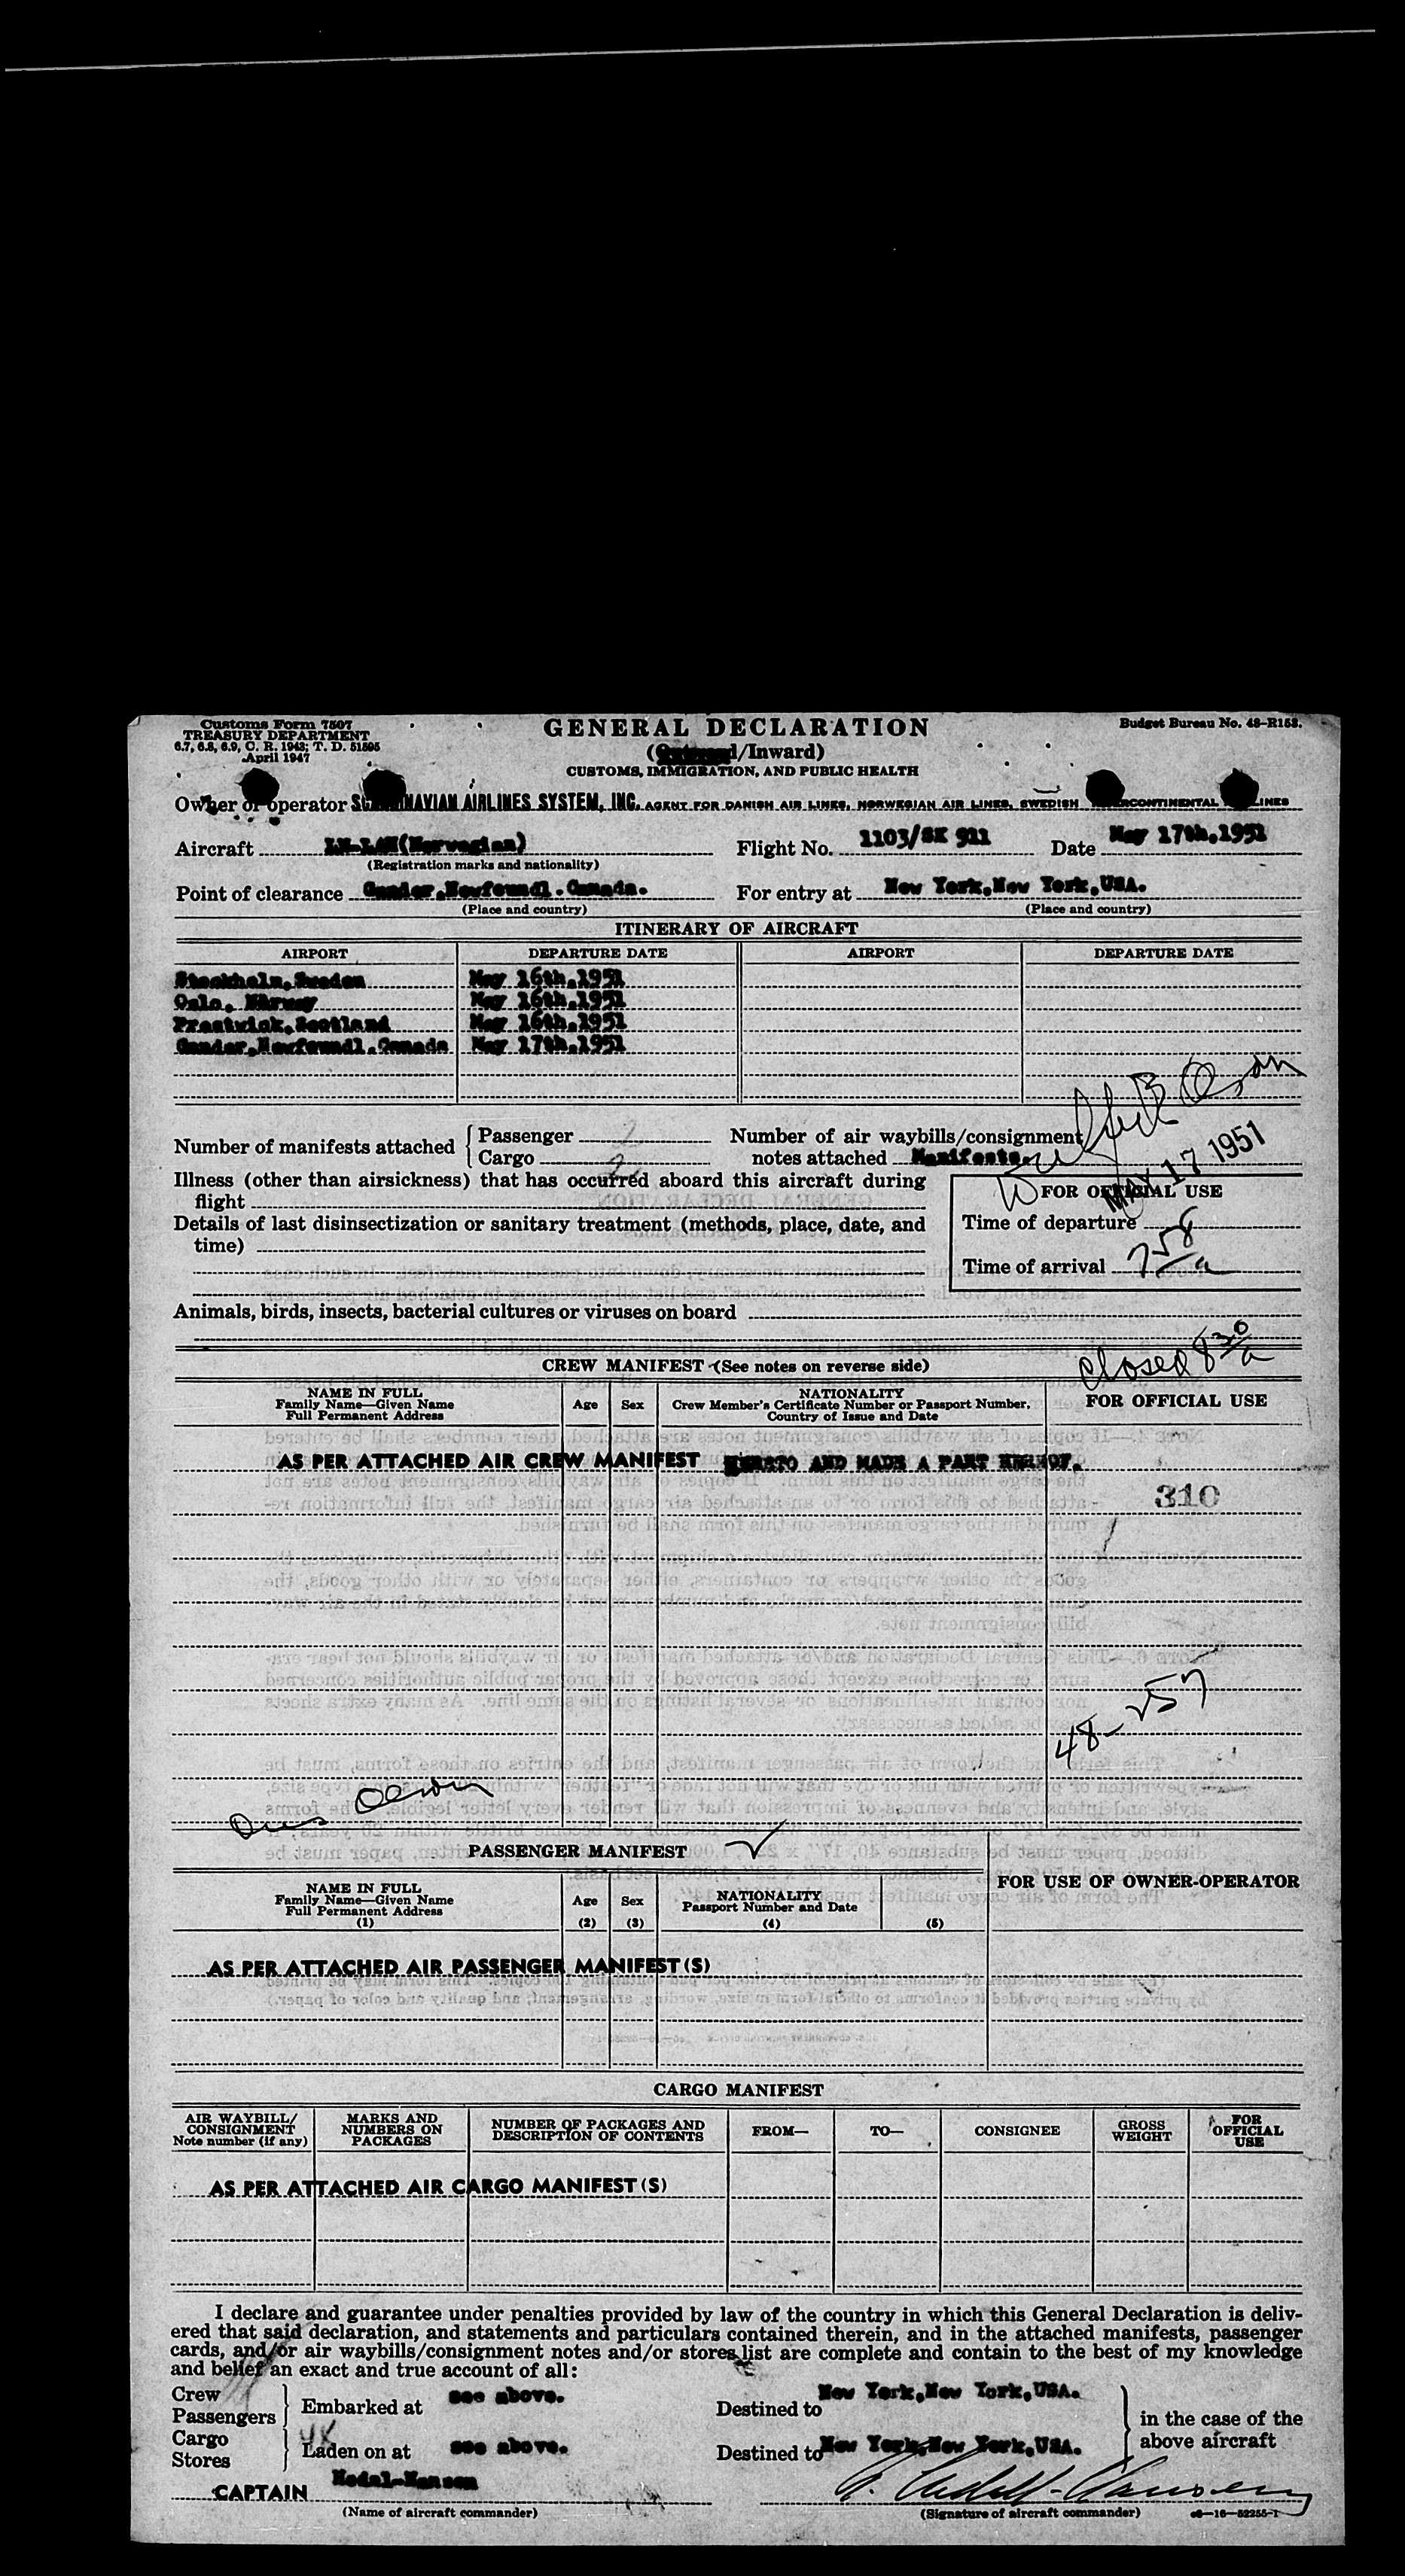 Customs Form 7507
TREASURY DEPARTMENT
6.7, 6.8, 6.9, C. R. 1943; T. D. 51595
April 1947
GENERAL DECLARATION
(Outward/Inward)
CUSTOMS, IMMIGRATION, AND PUBLIC HEALTH
Budget Bureau No. 48-R153.
Owner or operator SCANDINAVIAN AIRLINES SYSTEM, INC. AGENT FOR DANISH AIR LINES, NORWEGIAN AIR LINES, SWEDISH INTERCONTINENTAL AIRLINES
Aircraft (Norwegian) Flight No. 1103/SK 911 Date May 17th,1951
(Registration marks and nationality)
Point of clearance Gander,Newfoundl.Canada. For entry at New York,New York,USA.
(Place and country) (Place and country)
ITINERARY OF AIRCRAFT
AIRPORT DEPARTURE DATE AIRPORT DEPARTURE DATE
Stockholm,Sweden May 16th,1951
Oslo, Norway May 16th,1951
Prestwick,Scotland May 16th,1951
Gander,Newfoundl.Canada May 17th,1951
Number of manifests attached { Passenger
Cargo 2
Number of air waybills/consignment
notes attached Manifests.
MAY 17 1951
Illness (other than airsickness) that has occurred aboard this aircraft during
flight
Details of last disinsectization or sanitary treatment (methods, place, date, and
time)
FOR OFFICIAL USE
Time of departure
Time of arrival 758/a
Animals, birds, insects, bacterial cultures or viruses on board
Closed 830/a
CREW MANIFEST (See notes on reverse side)
NAME IN FULL
Family Name—Given Name
Full Permanent Address
Age
Sex
NATIONALITY
Crew Member's Certificate Number or Passport Number,
Country of Issue and Date
FOR OFFICIAL USE
AS PER ATTACHED AIR CREW MANIFEST HERETO AND MADE A PART HEREOF.
310
48-257
Olson
PASSENGER MANIFEST
FOR USE OF OWNER-OPERATOR
NAME IN FULL
Family Name—Given Name
Full Permanent Address
(1)
Age
(2)
Sex
(3)
NATIONALITY
Passport Number and Date
(4)
(5)
AS PER ATTACHED AIR PASSENGER MANIFEST(S)
CARGO MANIFEST
AIR WAYBILL/
CONSIGNMENT
Note number (if any)
MARKS AND
NUMBERS ON
PACKAGES
NUMBER OF PACKAGES AND
DESCRIPTION OF CONTENTS
FROM—
TO—
CONSIGNEE
GROSS
WEIGHT
FOR
OFFICIAL
USE
AS PER ATTACHED AIR CARGO MANIFEST(S)
I declare and guarantee under penalties provided by law of the country in which this General Declaration is deliv-
ered that said declaration, and statements and particulars contained therein, and in the attached manifests, passenger
cards, and/or air waybills/consignment notes and/or stores list are complete and contain to the best of my knowledge
and belief an exact and true account of all:
Crew
Passengers
Embarked at see above. Destined to New York,New York,USA.
Cargo
Stores
Laden on at see above. Destined to New York,New York,USA.
in the case of the
above aircraft
CAPTAIN Hedal-Hansen
(Name of aircraft commander) (Signature of aircraft commander) 16—52255-1